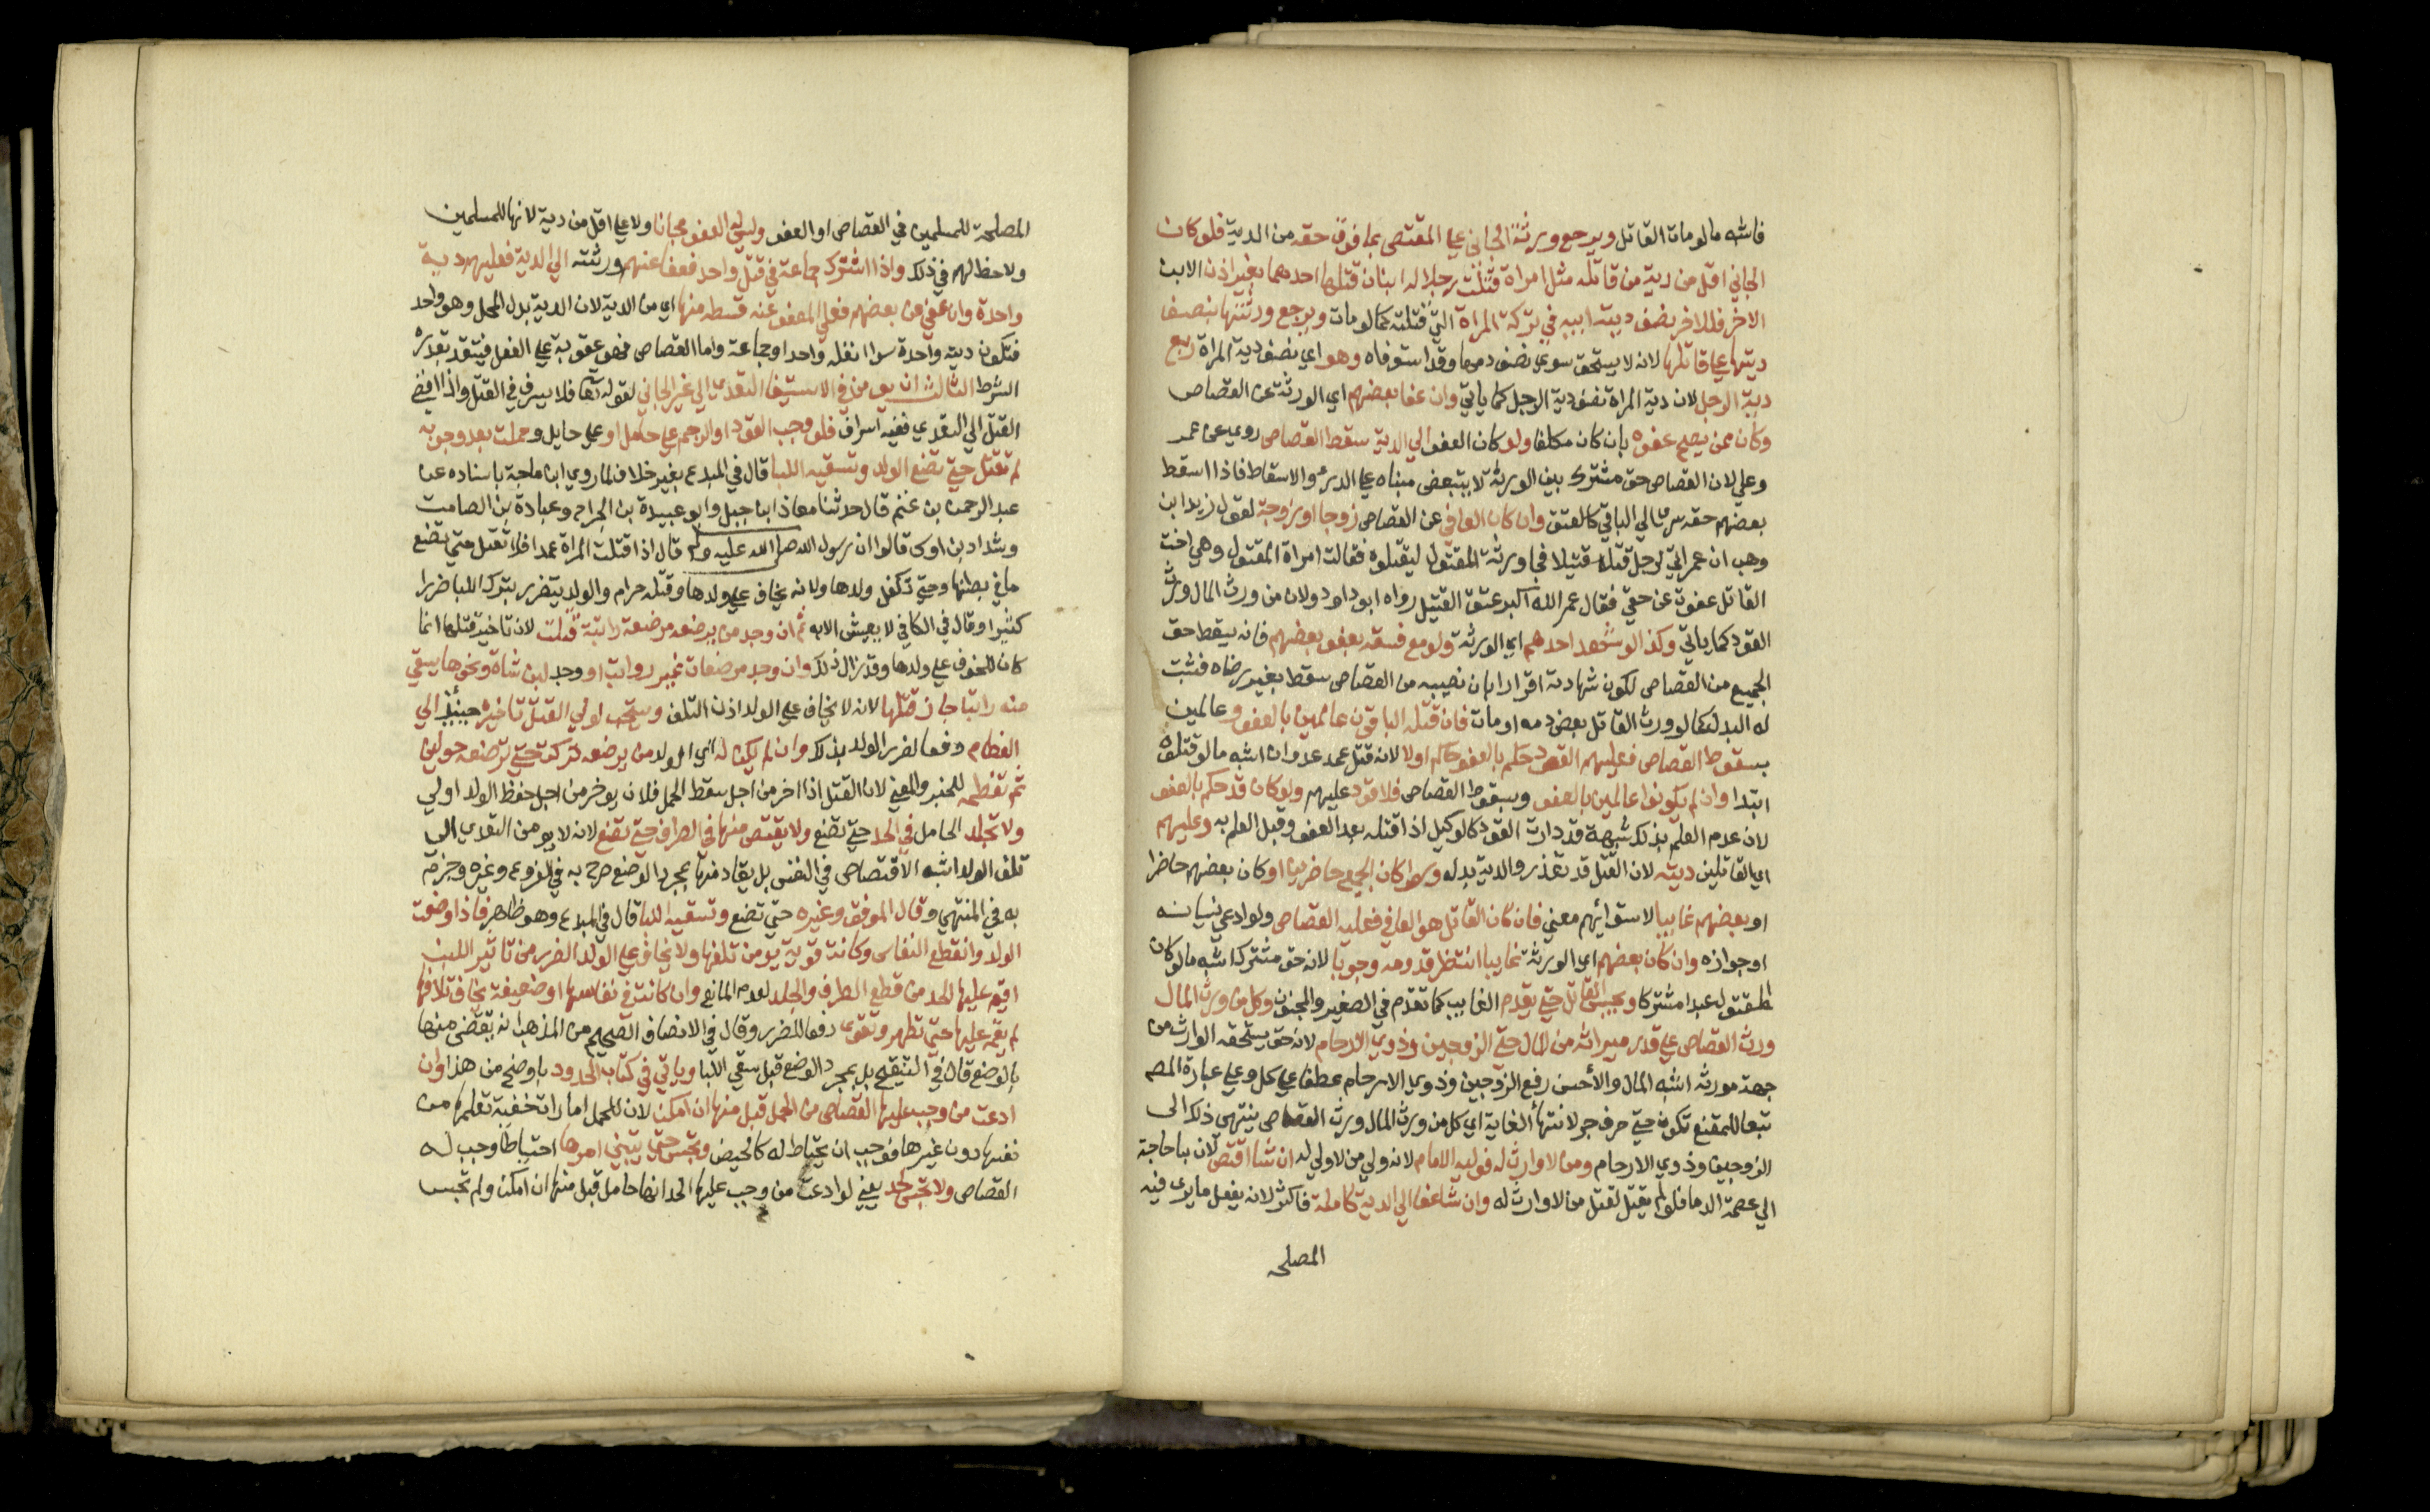 فاشبه ما لو مات القاتل ويرجع ورثة الجاني علي المقتص بما فوق حقه من الدية فلو كان
الجاني اقل من دية من قاتله مثل امراة قتلت رجلا له ابنان قتلها احدهما بغير اذن الابن
الاخر فللاخر نصف دية ابيه في تركة المراة التي قتلته كما لو مات ويرجع ورثتها بنصف
ديتها علي قاتلها لانه لا يستحق سوي نصف دمها وقد استوفاه وهو اي نصف دية المراة ربع
دية الرجل لان دية المراة نصف دية الرجل كما ياتي وان عفا بعضهم اي الورثة عن القصاص
وكان ممن يصح عفوه بان كان مكلفا ولو كان العفو الي الدية سقط القصاص روي عن عمر
وعلي لان القصاص حق مشترك بين الورثة لا يتبعض مبناه علي الدرء والاسقاط فاذا اسقط
بعضهم حقه سرى الي الباقي كالعتق وان كان العافي عن القصاص زوجا او زوجة لقول زيد ابن
وهب ان عمر اتي برجل قتل قتيلا فجا ورثة المقتول ليقتلوه فقالت امراة المقتول وهي اخت
القاتل عفوت عن حقي فقال عمر الله اكبر عتق القتيل رواه ابو داود ولان من ورث المال ورث
القود كما ياتي وكذا لو شهد احدهم اي الورثة ولو مع فسقه بعفو بعضهم فانه يسقط حق
الجميع من القصاص لكون شهادته اقرارا بان نصيبه من القصاص سقط بغير رضاه فثبت
له البدل كما لو ورث القاتل بعض دمه او مات فان قتله الباقون عالمين بالعفو وعالمين
بسقوط القصاص فعليهم القود حكم بالعفو حاكم اولا لانه قتل عمد عدوان اشبه ما لو قتلوه
ابتدا وان لم يكونوا عالمين بالعفو وسقوط القصاص فلا قود عليهم ولو كان قد حكم بالعفو
لان عدم العلم بذلك شبهة قد دارت القود كالوكيل اذا قتله بعد العفو وقبل العلم به وعليهم
اي القاتلين ديته لان القتل قد تعذر والدية بدله وسوا كان الجميع حاضرين او كان بعضهم حاضرا
او بعضهم غايبا لاستوائهم معني فان كان القاتل هو العافي فعليه القصاص ولو ادعي نسيانه
او جوازه وان كان بعضهم اي الورثة غايبا انتظر قدومه وجوبا لانه حق مشترك اشبه ما لو كان
المقتول عبدا مشتركا ويحبس القاتل حتي يقدم الغايب كما تقدم في الصغير والمجنون وكل من ورث المال
ورث القصاص علي قدر ميراثه من المال حتي الزوجين وذوي الارحام لانه حق يستحقه الوارث من
جهة مورثه اشبه المال والأحسن رفع الزوجين وذوي الارحام عطفا علي كل وعلي عبارة المص
تبعا للمقنع تكون حتي حرف جر لانتهأ الغاية اي كل من ورث المال ورث القصاص ينتهي ذلك الى
الزوجين وذوي الارحام ومن لا وارث له فوليه الامام لانه ولي من لا ولي له ان شا اقتص لان بنا حاجة
الي عصمة الدما فلو لم يقتل لقتل من لا وارث له وان شا عفا الي الدية كاملة فاكثر لانه يفعل ما يرى فيه
المصلحه
المصلحة للمسلمين في القصاص او العفو وليس له العفو مجانا ولا علي اقل من دية لانها للمسلمين
ولا حظ لهم في ذلك واذا اشترك جماعة في قتل واحد فعفا عنهم ورثته الي الدية فعليهم دية
واحدة وان عفي عن بعضهم فعلي المعفو عنه قسطه منها اي من الدية لان الدية بدل المحل وهو واحد
فتكون ديته واحدة سوا اتلفه واحد او جماعة واما القصاص فهو عقوبة علي الفعل فيتعدد بتعدده
الشرط الثالث ان يومن في الاستيفا التعدي الي غير الجاني لقوله تعا فلا يسرف في القتل واذا افضي
القتل الي التعدي ففيه اسراف فلو وجب القود او الرجم علي حامل او علي حايل وحملت بعد وجوبه
لم تقتل حتي تضع الولد وتسقيه اللبا قال في المبدع بغير خلاف لما روي ابن ماجة باسناده عن
عبد الرحمن بن غنم قال حدثنا معاذ ابن جبل وابو عبيدة بن الجراح وعبادة بن الصامت
وشداد بن اوس قالوا ان رسول الله صلى الله عليه وسلم قال اذا قتلت المراة عمدا فلا تقتل حتي تضع
ما في بطنها وحتي تكفل ولدها ولانه يخاف علي ولدها وقتله حرام والولد يتضرر بترك اللبا ضررا
كثيرا وقال في الكافي لا يعيش الا به ثم ان وجد من يرضعه مرضعة راتبة قتلت لان تاخير قتلها انما
كان للخوف علي ولدها وقد زال ذلك وان وجد مرضعات غير رواتب او وجد لبن شاة ونحوها يسقي
منه راتبا جاز قتلها لانه لا يخاف علي الولد اذن التلف ويستحب لولي القتل تاخيره حينئذ الي
الفطام دفعا لضرر الولد بذلك وان لم يكن له اي الولد من يرضعه تركت حتي ترضعه حولين
ثم تفطمه للخبر والمعني لان القتل اذا اخر من اجل سقط الحمل فلان يوخر من اجل حفظ الولد اولي
ولا تجلد الحامل في الحد حتي تضع ولا يقتص منها في الطرف حتي تضع لانه لا يومن التعدي الى
تلف الولد اشبه الاقتصاص في النفس بل يقاد منها بمجرد الوضع صرح به في الفروع وغيره وجزم
به في المنتهي وقال الموفق وغيره حتي تضع وتسقيه اللبا قال في المبدع وهو ظاهر فاذا وضعت
الولد وانقطع النفاس وكانت قوية يومن تلفها ولا يخاف علي الولد الضرر من تاثير اللبن
اقيم عليها الحد من قطع الطرف والجلد لعدم المانع وان كانت في نفاسها او ضعيفة يخاف تلافها
لم يقم عليها حتي تطهر وتقوى دفعا للضرر وقال في الانصاف الصحيح من المذهب انه يقتص منها
بالوضع قال في التنقيح بل بمجرد الوضع قبل سقي اللبا وياتي في كتاب الحدود باوضح من هذا وان
ادعت من وجب عليها القصاص من الحمل قبل منها ان امكن لان للحمل امارات خفية تعلمها من
نفسها دون غيرها فوجب ان يحتاط له كالحيض وتحبس حتي يتبين امرها احتياطا وجب له
القصاص ولا تحبس لحد يعني لو ادعت من وجب عليها الحد انها حامل قبل منها ان امكن ولم تحبس